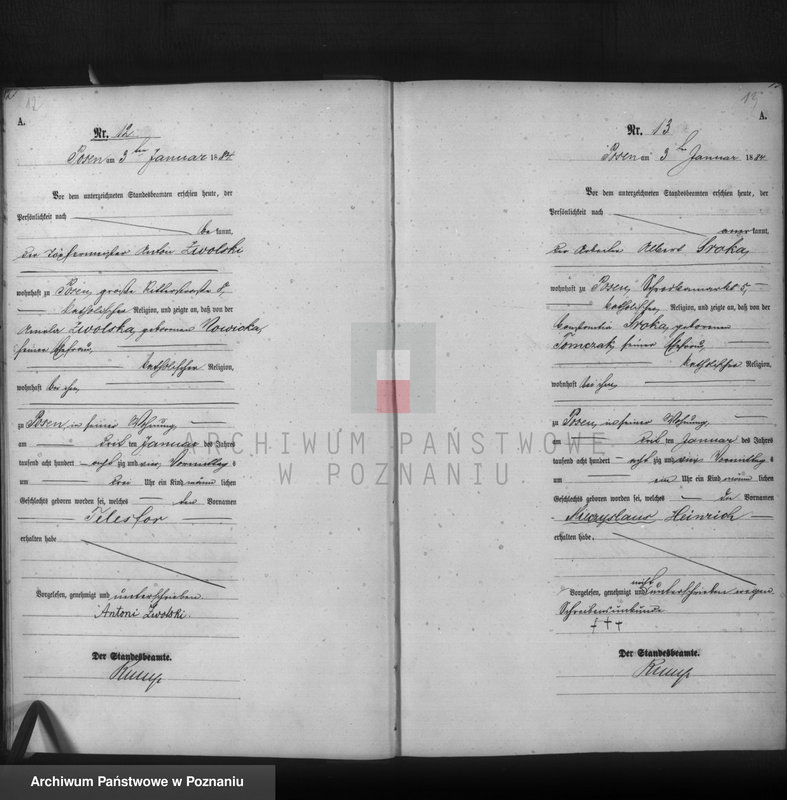 12
A.
Nr. 12
Posen am 3ten Januar 1884
Vor dem unterzeichneten Standesbeamten erschien heute, der
Persönlichkeit nach
be kannt,
der Töpfermeister Anton Zwolski
wohnhaft zu Posen, große Ritterstraße
katholischer Religion, und zeigte an, daß von der
Zwolska, geborenen Nowicka,
seiner Ehefrau,
katholischer Religion,
wohnhaft bei ihm,
zu Posen, in seiner Wohnung,
am drei ten Januar des Jahres
tausend acht hundert acht zig und vier, Vormittag s
um drei Uhr ein Kind männ lichen
Geschlechts geboren worden sei, welches den Vornamen
Telesfor
erhalten habe
Vorgelesen, genehmigt und unterschrieben.
Antoni Zwolski.
Der Standesbeamte.
13
A.
Nr. 13
Posen am 3ten Januar 1884
Vor dem unterzeichneten Standesbeamten erschien heute, der
Persönlichkeit nach
aner kannt,
der Arbeiter Albert Sroka,
wohnhaft zu Posen, 5,
katholischer Religion, und zeigte an, daß von der
Constantia Sroka, geborenen
Tomczak, seiner Ehefrau,
katholischer Religion,
wohnhaft bei ihm,
zu Posen, in seiner Wohnung,
am drei ten Januar des Jahres
tausend acht hundert acht zig und vier, Vormittag s
um ein Uhr ein Kind männ lichen
Geschlechts geboren worden sei, welches die Vornamen
Mieczyslaus Heinrich
erhalten habe,
Vorgelesen, genehmigt und nicht unterschrieben wegen
Schreibensunkunde
+++
Der Standesbeamte.
ARCHIWUM PAŃSTWOWE
W POZNANIU
Archiwum Państwowe w Poznaniu